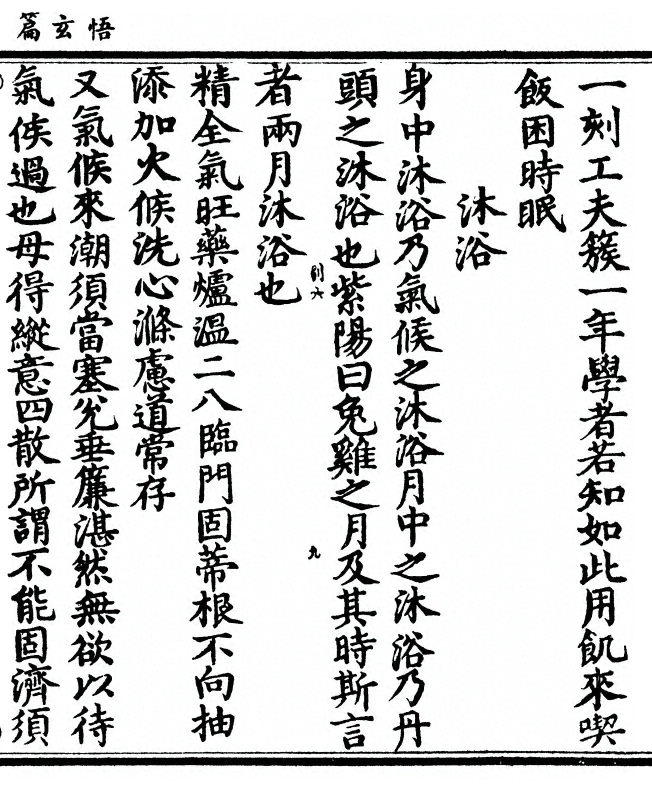 悟玄篇
一刻工夫簇一年學者若知如此用飢來喫
飯困時眠
沐浴
身中沐浴乃氣候之沐浴月中之沐浴乃丹
頭之沐浴也紫陽曰兔雞之月及其時斯言
者兩月沐浴也
精全氣旺藥爐溫二八臨門固蒂根不向抽
添加火候洗心滌慮道常存
又氣候來潮須當塞兊垂簾湛然無欲以待
氣候過也毋得縱意四散所謂不能固濟須
九